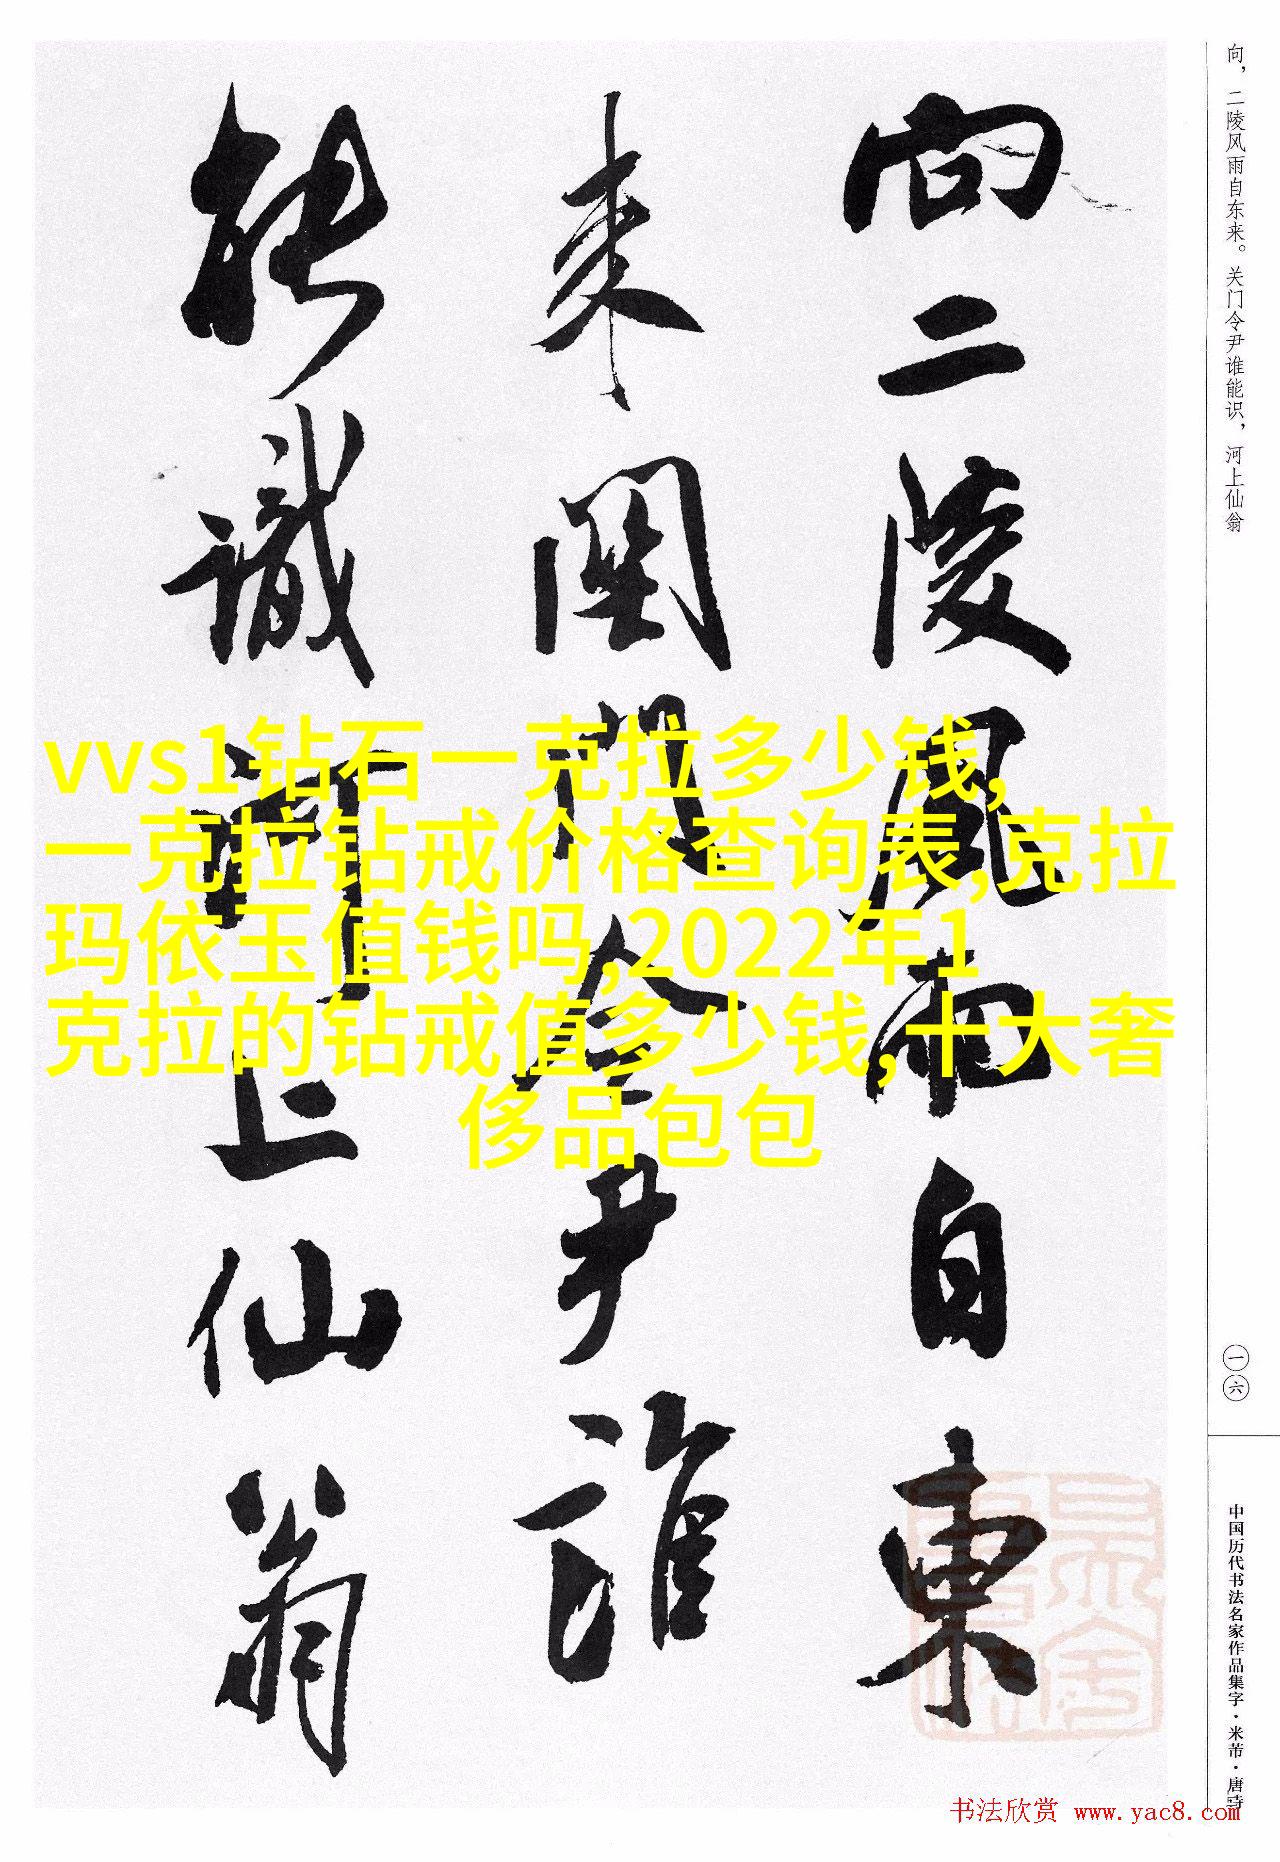 向二陵風雨自東
来關門令尹誰
能識河上仙翁
向，二陵风雨自东来。关门令尹谁能识，河上仙翁
一六
中国历代书法名家作品集字·米芾·唐诗
vvs1钻石一克拉多少钱,
一克拉钻戒价格查询表,克拉
玛依玉值钱吗,2022年1
克拉的钻戒值多少钱,十大奢
侈品包包
书法欣赏 www.yac8.com